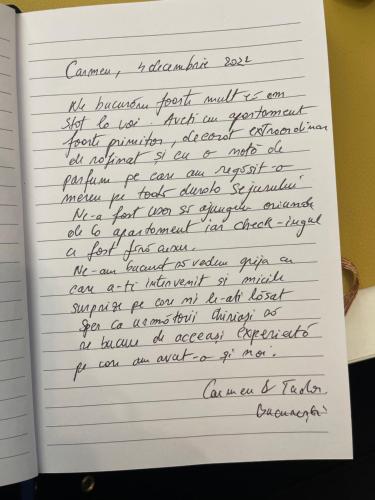 Carmen, 4 decembrie 2022
Ne bucurăm foarte mult că am
stat la voi. Aveți un apartament
foarte primitor, decorat extraordinar
de rafinat și cu o notă de
parfum pe care am regăsit-o
mereu pe toată durata sejurului
Ne-a fost ușor să ajungem oriunde
de la apartament iar check-ingul
a fost fără
Ne-am bucurat să vedem grija cu
care a-ți intervenit și micile
surprize pe care ni le-ați lăsat
Sper ca următorii chiriași să
se bucure de aceeași experiență
pe care am avut-o și noi.
Carmen & Tudor